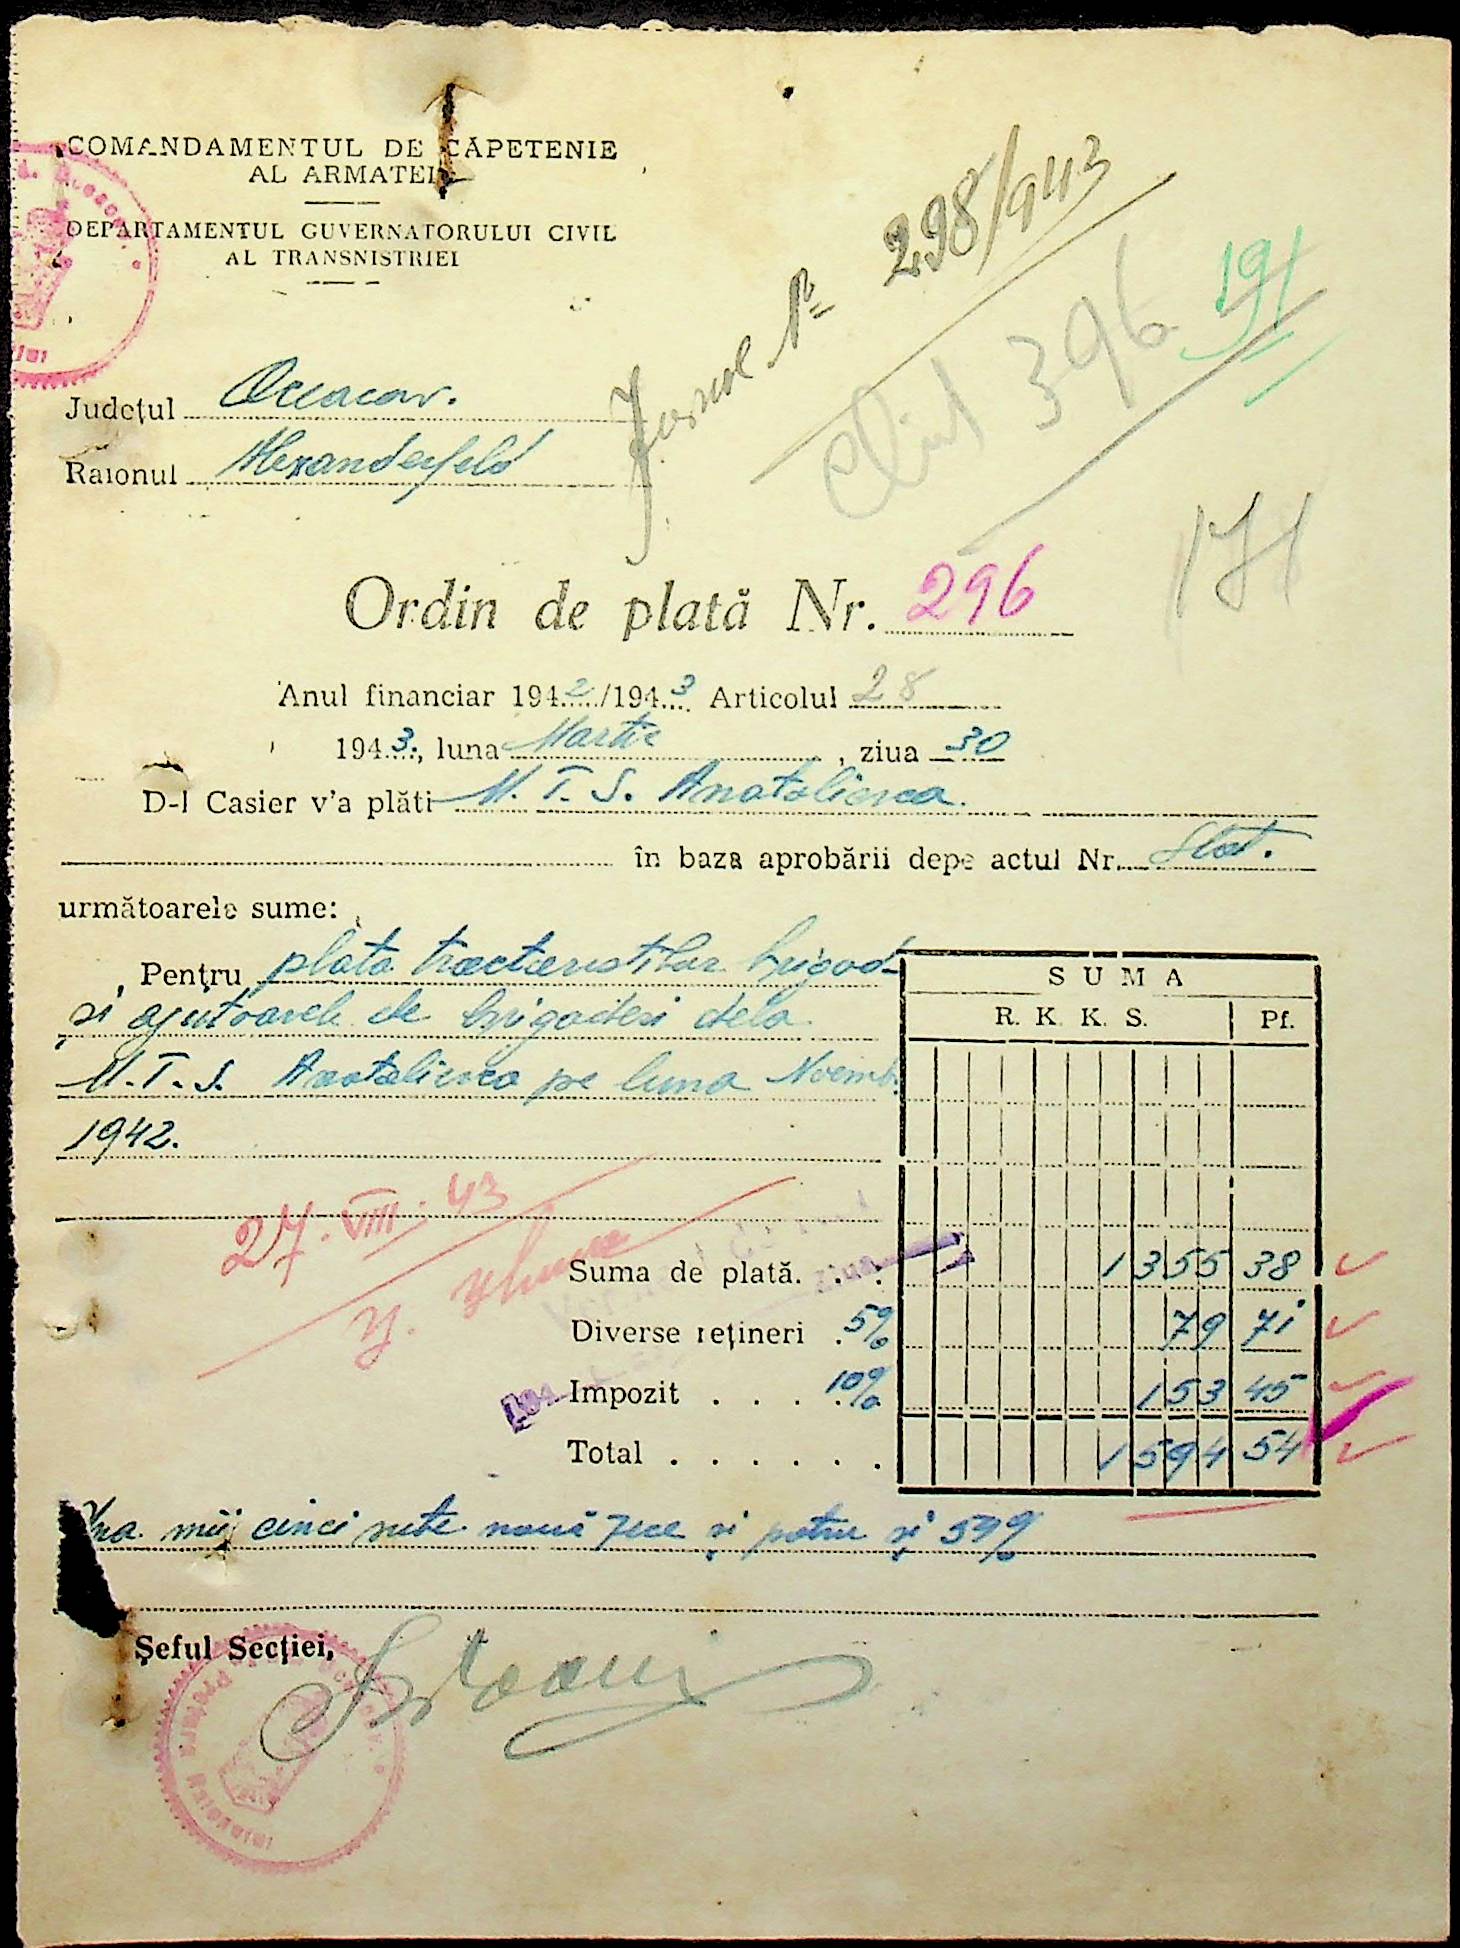 COMANDAMENTUL DE CĂPETENIE
AL ARMATEI
DEPARTAMENTUL GUVERNATORULUI CIVIL
AL TRANSNISTRIEI
Jurnal No 298/943
396
191
Județul Oceacov.
Raionul Alexanderfeld
171
Ordin de plată Nr. 296
Anul financiar 1942/1943 Articolul 28
1943., luna Martie, ziua 30
D-l Casier v'a plăti M. T. S. Anatolievca.
în baza aprobării depe actul Nr. Stat.
următoarele sume:
Pentru plata tractoristilor brigad.
și ajutoarele de brigaderi dela
M. T. S. Anatolievca pe luna Noemb.
1942.
SUMA
R. K. K. S. Pf.
27. VIII. 43
Suma de plată. . . 1355 38
Diverse rețineri . 5% 79 71
Impozit . . . . 10% 153 45
Total . . . . . . . 1594 54
Una mii cinci sute nouă zece și patru și 54%
Șeful Secției,